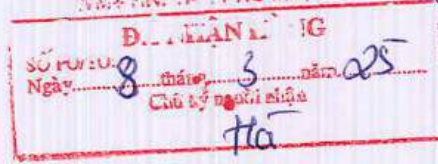 Đ... NHẬN H...NG
SỐ PO/TO:
Ngày 8 tháng 3 năm 25
Chữ ký người nhận
Hà